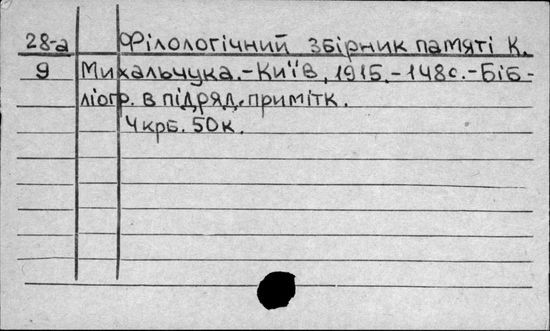 28-а Філологічний збірник памяті К.
9 Михальчука.-Київ, 1915.-148с.-Біб-
ліогр. в підряд. примітк.
4крб. 50к.